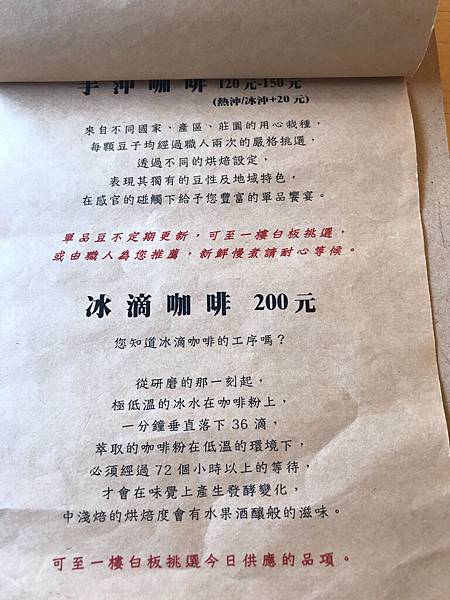 手沖咖啡 120元-150元
(熱沖/冰沖+20元)
來自不同國家、產區、莊園的用心栽種，
每顆豆子均經過職人兩次的嚴格挑選，
透過不同的烘焙設定，
表現其獨有的豆性及地域特色，
在感官的碰觸下給予您豐富的單品饗宴。
單品豆不定期更新，可至一樓白板挑選，
或由職人為您推薦，新鮮慢煮請耐心等候。
冰滴咖啡 200元
您知道冰滴咖啡的工序嗎？
從研磨的那一刻起，
極低溫的冰水在咖啡粉上，
一分鐘垂直落下36滴，
萃取的咖啡粉在低溫的環境下，
必須經過72個小時以上的等待，
才會在味覺上產生發酵變化，
中淺焙的烘焙度會有水果酒釀般的滋味。
可至一樓白板挑選今日供應的品項。